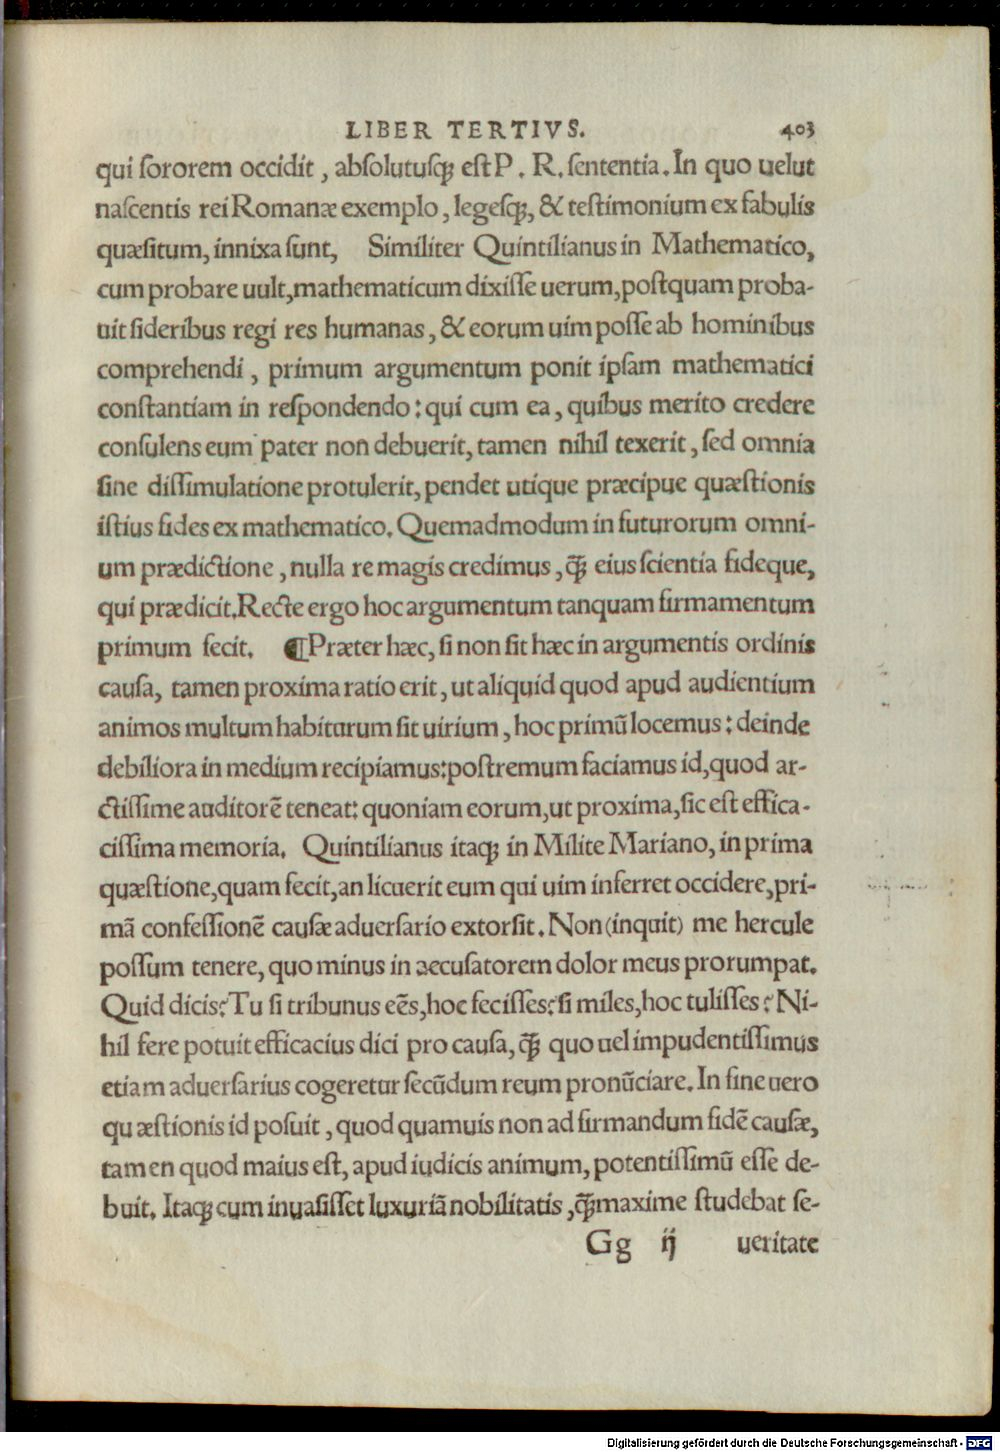 LIBER TERTIVS. 403
qui sororem occidit, absolutusq́; est P. R. sententia. In quo uelut
nascentis rei Romanæ exemplo, legesq́;, & testimonium ex fabulis
quæsitum, innixa sunt, Similiter Quintilianus in Mathematico,
cum probare uult, mathematicum dixisse uerum, postquam proba-
uit sideribus regi res humanas, & eorum uim posse ab hominibus
comprehendi, primum argumentum ponit ipsam mathematici
constantiam in respondendo: qui cum ea, quibus merito credere
consulens eum pater non debuerit, tamen nihil texerit, sed omnia
sine dissimulatione protulerit, pendet utique præcipue quæstionis
istius fides ex mathematico. Quemadmodum in futurorum omni-
um prædictione, nulla re magis credimus, q̃; eius scientia fideque,
qui prædicit. Recte ergo hoc argumentum tanquam firmamentum
primum fecit. ¶Præter hæc, si non sit hæc in argumentis ordinis
causa, tamen proxima ratio erit, ut aliquid quod apud audientium
animos multum habiturum sit uirium, hoc primũ locemus: deinde
debiliora in medium recipiamus: postremum faciamus id, quod ar-
ctissime auditorẽ teneat: quoniam eorum, ut proxima, sic est effica-
cissima memoria. Quintilianus itaq; in Milite Mariano, in prima
quæstione, quam fecit, an licuerit eum qui uim inferret occidere, pri-
mã confessionẽ causæ aduersario extorsit. Non (inquit) me hercule
possum tenere, quo minus in accusatorem dolor meus prorumpat.
Quid dicis? Tu si tribunus eẽs, hoc fecisses? si miles, hoc tulisses? Ni-
hil fere potuit efficacius dici pro causa, q̃; quo uel impudentissimus
etiam aduersarius cogeretur secũdum reum pronũciare. In fine uero
quæstionis id posuit, quod quamuis non ad firmandum fidẽ causæ,
tamen quod maius est, apud iudicis animum, potentissimũ esse de-
buit. Itaq; cum inuasisset luxuriã nobilitatis, q̃; maxime studebat se-
Gg ij ueritate
Digitalisierung gefördert durch die Deutsche Forschungsgemeinschaft - DFG